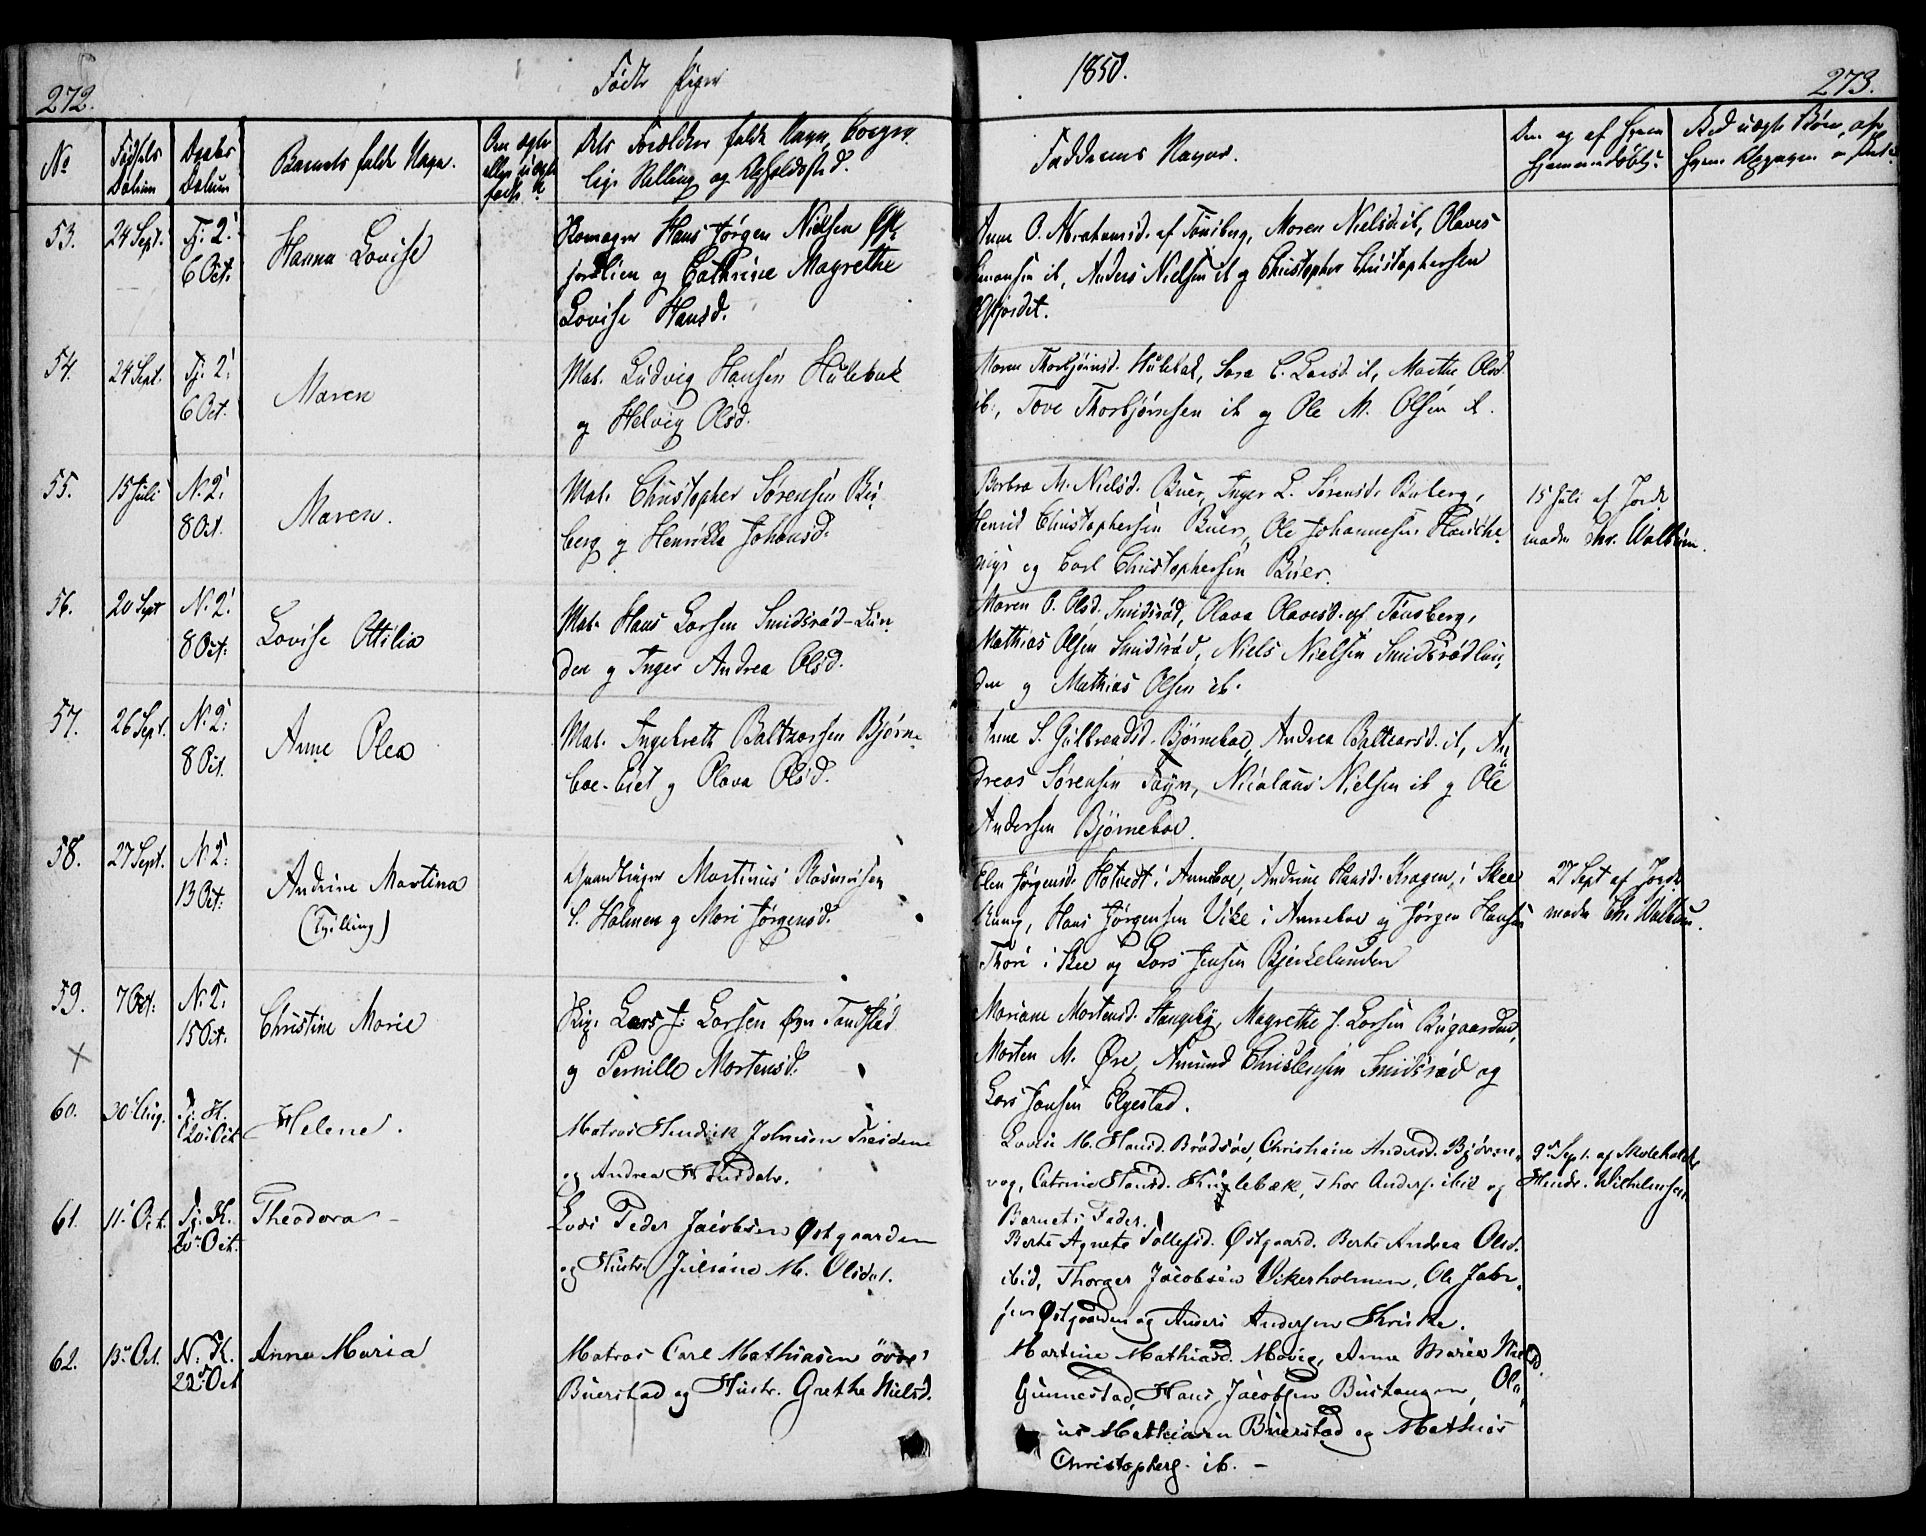 272.
Fødte Piger
1850.
273.
No
Fødsels Datum
Daabs Datum
Barnets fulde Navn.
Om ægte eller uægte født
Dets Forældres fulde Navn, Borger-
lige Stilling og Opholdsted.
Faddernes Navne.
53.
24 Sept.
Tj. 2:
6 Oct:
Hanna Lovise
Hans Jørgen Nielsen
og Cathrine Magrethe
Lovise Hansd.
Anne O. Abrahamsd. af Tønsberg, Maren Nielsd. ib, Olaves
Simonsen ib, Anders Nielsen ib og Christopher Christophersen
54.
24 Sept.
Tj. 2:
6 Oct:
Maren
Mat. Ludvig Hansen Hulebak
og Helvig Olsd.
Maren Thorbjørnsd. Hulebak, Sara C. Larsd. ib, Marthe Olsd.
ib., Tove Thorbjørnsen ib og Ole M. Olsen ib.
55.
15 Juli
N. 2:
8 Oct.
Maren.
Mat. Christopher Sørensen Bu-
berg og Henrikke Johansd.
Berbra M. Nielsd. Buer, Inger L. Sørensd. Buberg,
Christophersen Buer, Ole Johannesen
og Carl Christophersen Buer.
15 Juli af Jorde-
moder Chr. Walbum.
56.
20 Sept
N. 2:
8 Oct:
Lovise Ottilia
Mat. Hans Larsen Smidsrød-Lun-
den og Inger Andrea Olsd.
Maren O. Olsd. Smidsrød, Olava Olavesd. af Tønsberg,
Mathias Olsen Smidsrød, Niels Nielsen Smidsrødlun-
den og Mathias Olsen ib.
57.
26 Sept.
N. 2:
8 Oct.
Anne Olea
Mat. Ingebreth Baltzersen Bjørne-
boe-Eiet og Olava Olsd.
Anne S. Gulbrandsd. Bjørneboe, Andrea Baltzarsd. ib, An-
dreas Sørensen Fayn, Nicolaus Nielsen ib og Ole
Andersen Bjørneboe.
58.
27 Sept.
N. 2:
13 Oct:
Andrine Martina
(Tvilling)
Martinus Rasmusen
Holmen og Mari Jørgensd.
Elen Jørgensd. Hotvedt i Anneboe, Andrine Hansd. Kragen i Skee
Hans Jørgensen Vike i Anneboe og Jørgen Hansen
Thori i Skee og Lars Jensen Bjerkelunden
27 Sept af Jorde-
moder Chr. Walbum.
59.
7 Oct:
N. 2:
15 Oct.
Christine Marie
Lars J. Larsen Øvre Tandstad
og Pernille Mortensd.
Mariane Mortensd. Stangeby, Magrethe J. Larsen Bugaarden,
Morten M. Øre, Amund Christensen Smidsrød og
Lars Jansen Elgestad.
60.
30 Aug.
Tj. K.
20 Oct
Helene.
Matros Hendrik Johnsen Treidene
og Andrea Hansdatr.
Lovise M. Hansd. Brødsøe, Christiane Andersd. Bjørne-
vog, Catrine Hansd. Huglebæk, Thor Anders. ibid og
Barnets Fader.
9de Sept. af Skoleholder
Hendr. Wilhelmsen.
61.
11 Oct.
Tj. K.
20 Oct.
Theodora -
Lods Peder Jacobsen Østgaarden
og Hustr. Juliane M. Olsdat.
Berte Agnete Tollefsd. Østgaard. Berte Andrea Olsd.
ibid, Thorger Jacobsen Vikerholmen, Ole Jabr-
jen Østgaarden og Anders Andersen
62.
13 Oct.
N. K.
22 Oct
Anna Maria
Matros Carl Mathiasen øvre
Buerstad og Hustr. Grethe Nielsd.
Martine Mathiasd. Movig, Anne Marie Nielsd.
Gunnestad, Hans Jacobsen Bustangen, Ol-
us Mathiasen Buerstad og Mathias
Christophers. ib. -